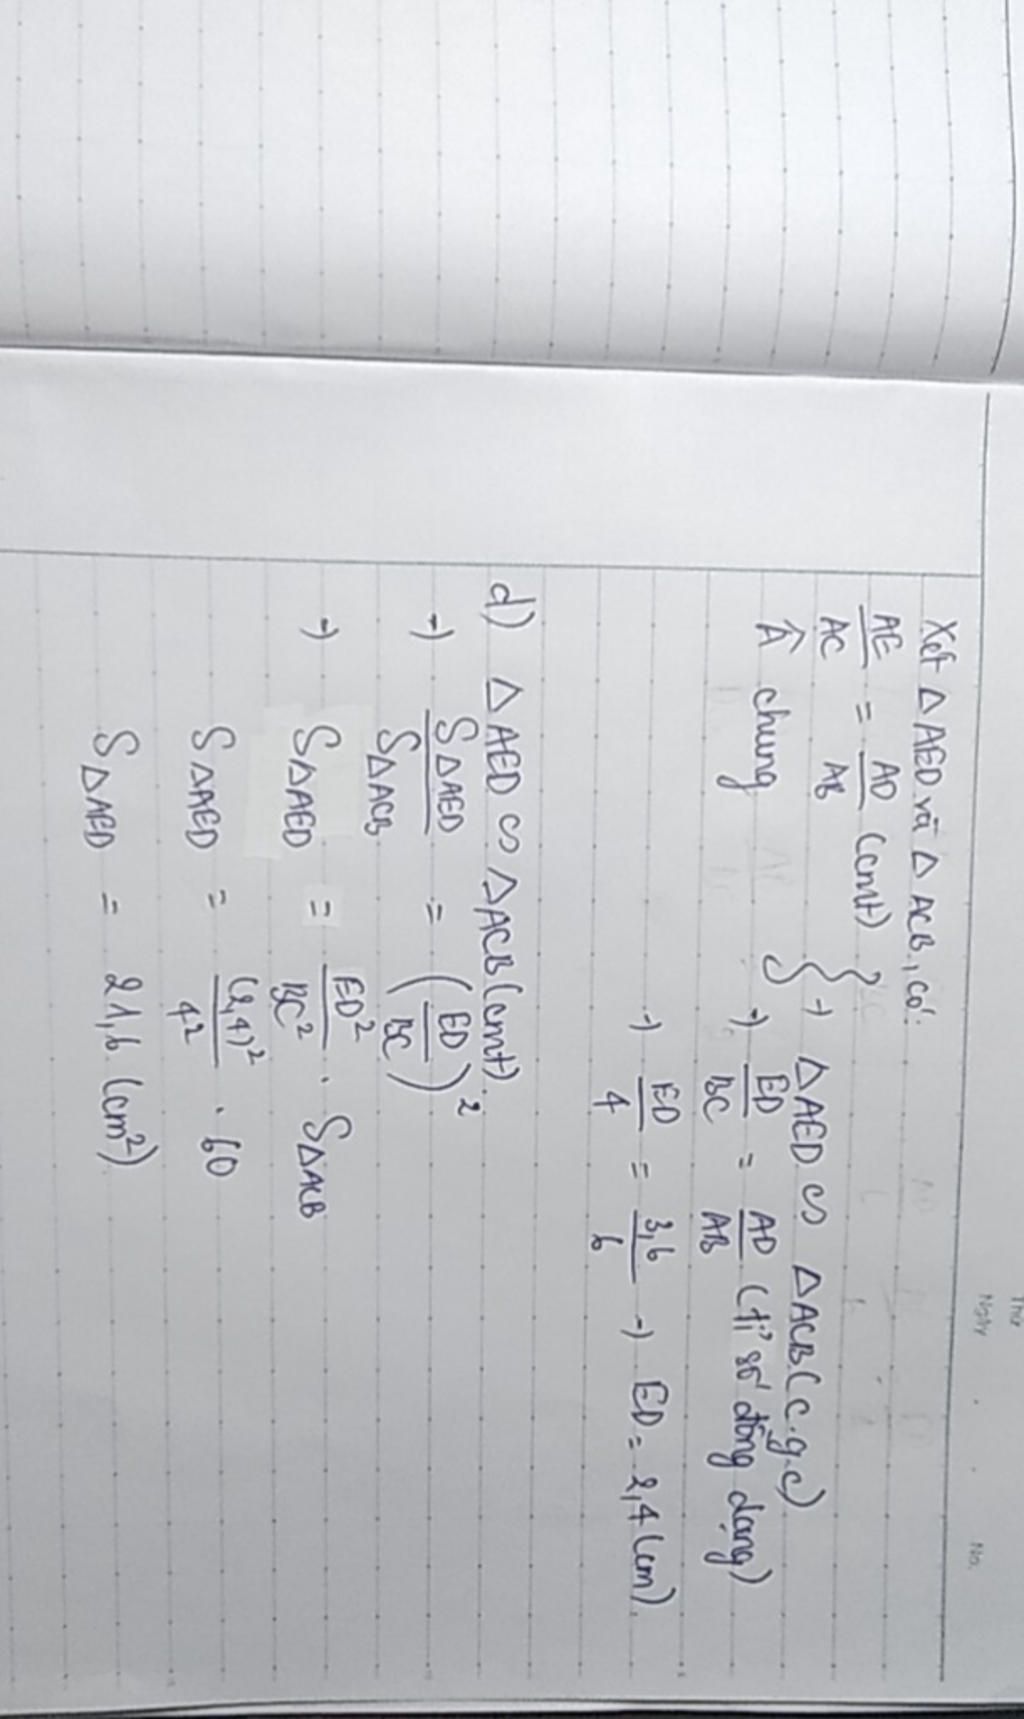 Thứ
Ngày . . No.
Xét △AED và △ACB, có:
AE/AC = AD/AB (cmt)
Â chung
} → △AED ∽ △ACB (c.g.c)
→ ED/BC = AD/AB (tỉ số đồng dạng)
→ ED/4 = 3,6/6 → ED = 2,4 (cm).
d) △AED ∽ △ACB (cmt).
→ S△AED/S△ACB = (ED/BC)²
→ S△AED = ED²/BC² . S△ACB
S△AED = (2,4)²/4² . 60
S△AED = 21,6 (cm²)